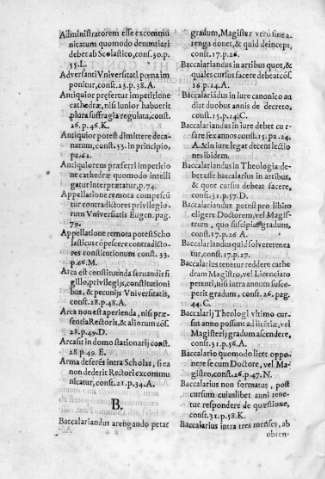 Administratorem esse excommu
nicatum quomodo denuntiari
debet ab Scholastico, const.30.p.
35.L.
Adversanti Vniversitati pœna im
ponitur, const.25.p.38.A.
Antiquior præfertur impetitione
cathedræ, nisi Iunior habuerit
plura suffragia regulata, const.
26.p.46.K.
Antiquior potest dimittere deca-
natum, const.33. in principio,
pa.61.
Antiquiorem præferri impetitio
ne cathedræ quomodo intelli
gatur Interpræatur, p.74.
Appellatione remota compescũ
tur contradictores privilegio-
rum Vniversatis Eugen. pag.
79.
Appellatione remota potest Scho
lasticus cõpescere contradicto-
res constitutionum const. 33.
p.61.M.
Arca est constituenda servandis si
gillo, privilegijs, constitutioni
bus, & pecunijs Vniversitatis,
const.28.p.48.A.
Arca non est aperienda, nisi præ-
sentia Rectoris, & aliorum cõst.
28.p.49.D.
Arcasit in domo stationarij const.
28.p.49. E.
Arma deferẽs intra Scholas, si ea
non dederit Rectori excommu
nicatur, const.21.p.34.A.
B.
Baccalariandus arengando petat
gradum, Magister verò sine a-
renga donet, & quid deinceps,
const.17.p.26.
Baccalariandus in artibus quot, &
quales cursus facere debeat cõst.
16.p.24.A.
Baccalariandus in iure canonico au
diat duobus annis de decreto,
const.15.p.24.C.
Baccalariandus in iure debet cur
sare sex annos const.15.pa.24.
A.& in iure legat decem lectio
nes ibidem.
Baccalariandus in Theologia de-
bet esse baccalarius in artibus,
& quot cursus debeat facere,
const.31.p.57.D.
Baccalariandus potest pro libito
eligere Doctorem, vel Magis-
trum, à quo suscipiat gradum,
const.17.p.26 A.
Baccalariandus quid solvere tenea
tur, const.17.p.27.
Baccalarius tenetur reddere cathe
dram Magistro, vel Licenciato
petenti, nisi intra annum susce-
perit gradum, const. 26. pag.
44.C.
Baccalarij Theologi vltimo cur-
sus anno possunt ad licentiæ, vel
Magisterij gradum ascendere,
const.31.p.56.A.
Baccalario quomodo licet oppo-
nere se cum Doctore, vel Ma-
gistro, const.26.p.47.N.
Baccalarius non formatus, post
cursum cuiuslibet anni tene-
tur respondere de quæstione,
const.31.p.58.K.
Baccalarius intra tres menses, ab
obten-